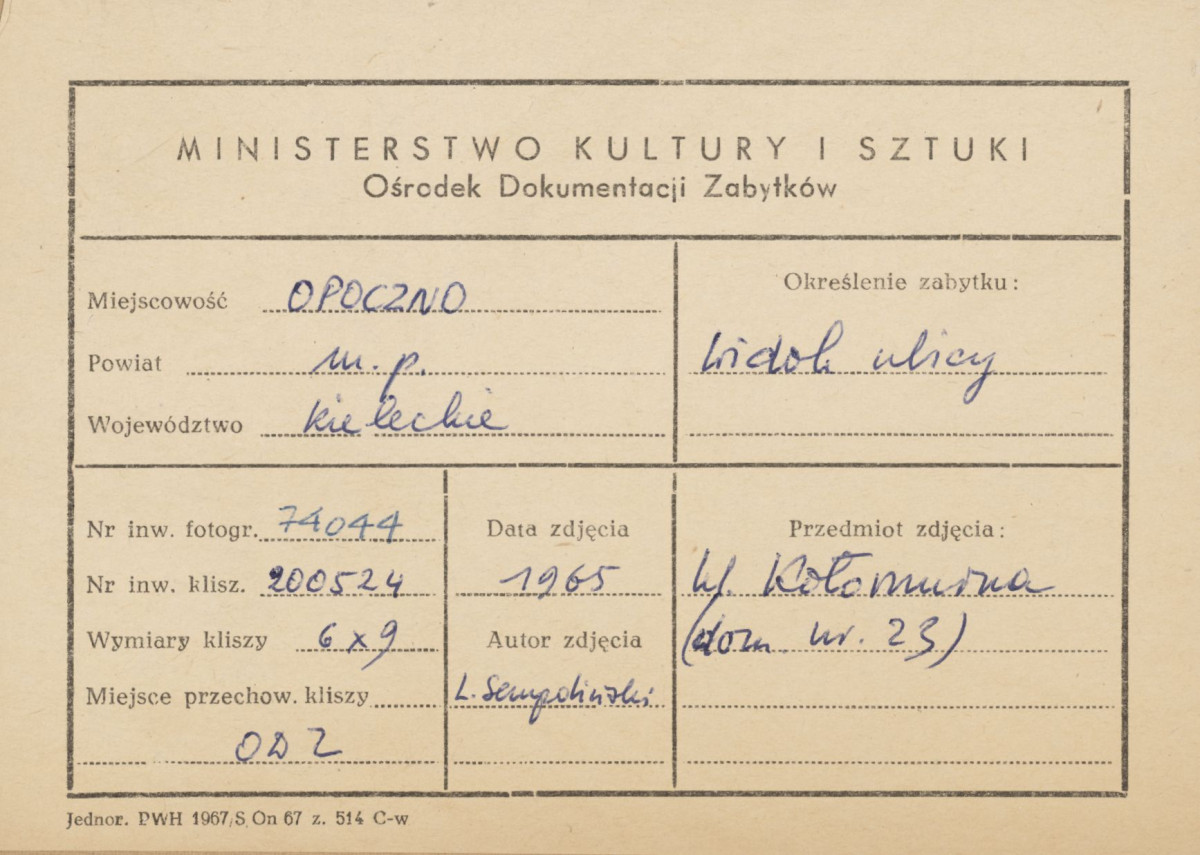 MINISTERSTWO KULTURY I SZTUKI
Ośrodek Dokumentacji Zabytków
Miejscowość OPOCZNO
Powiat m.p.
Województwo kieleckie
Określenie zabytku:
widok ulicy
Nr inw. fotogr. 74044
Nr inw. klisz. 200524
Wymiary kliszy 6x9
Miejsce przechow. kliszy
ODZ
Data zdjęcia
1965
Autor zdjęcia
L. Sempoliński
Przedmiot zdjęcia:
(dom. nr. 23)
Jednor. PWH 1967/S On 67 z. 514 C-w